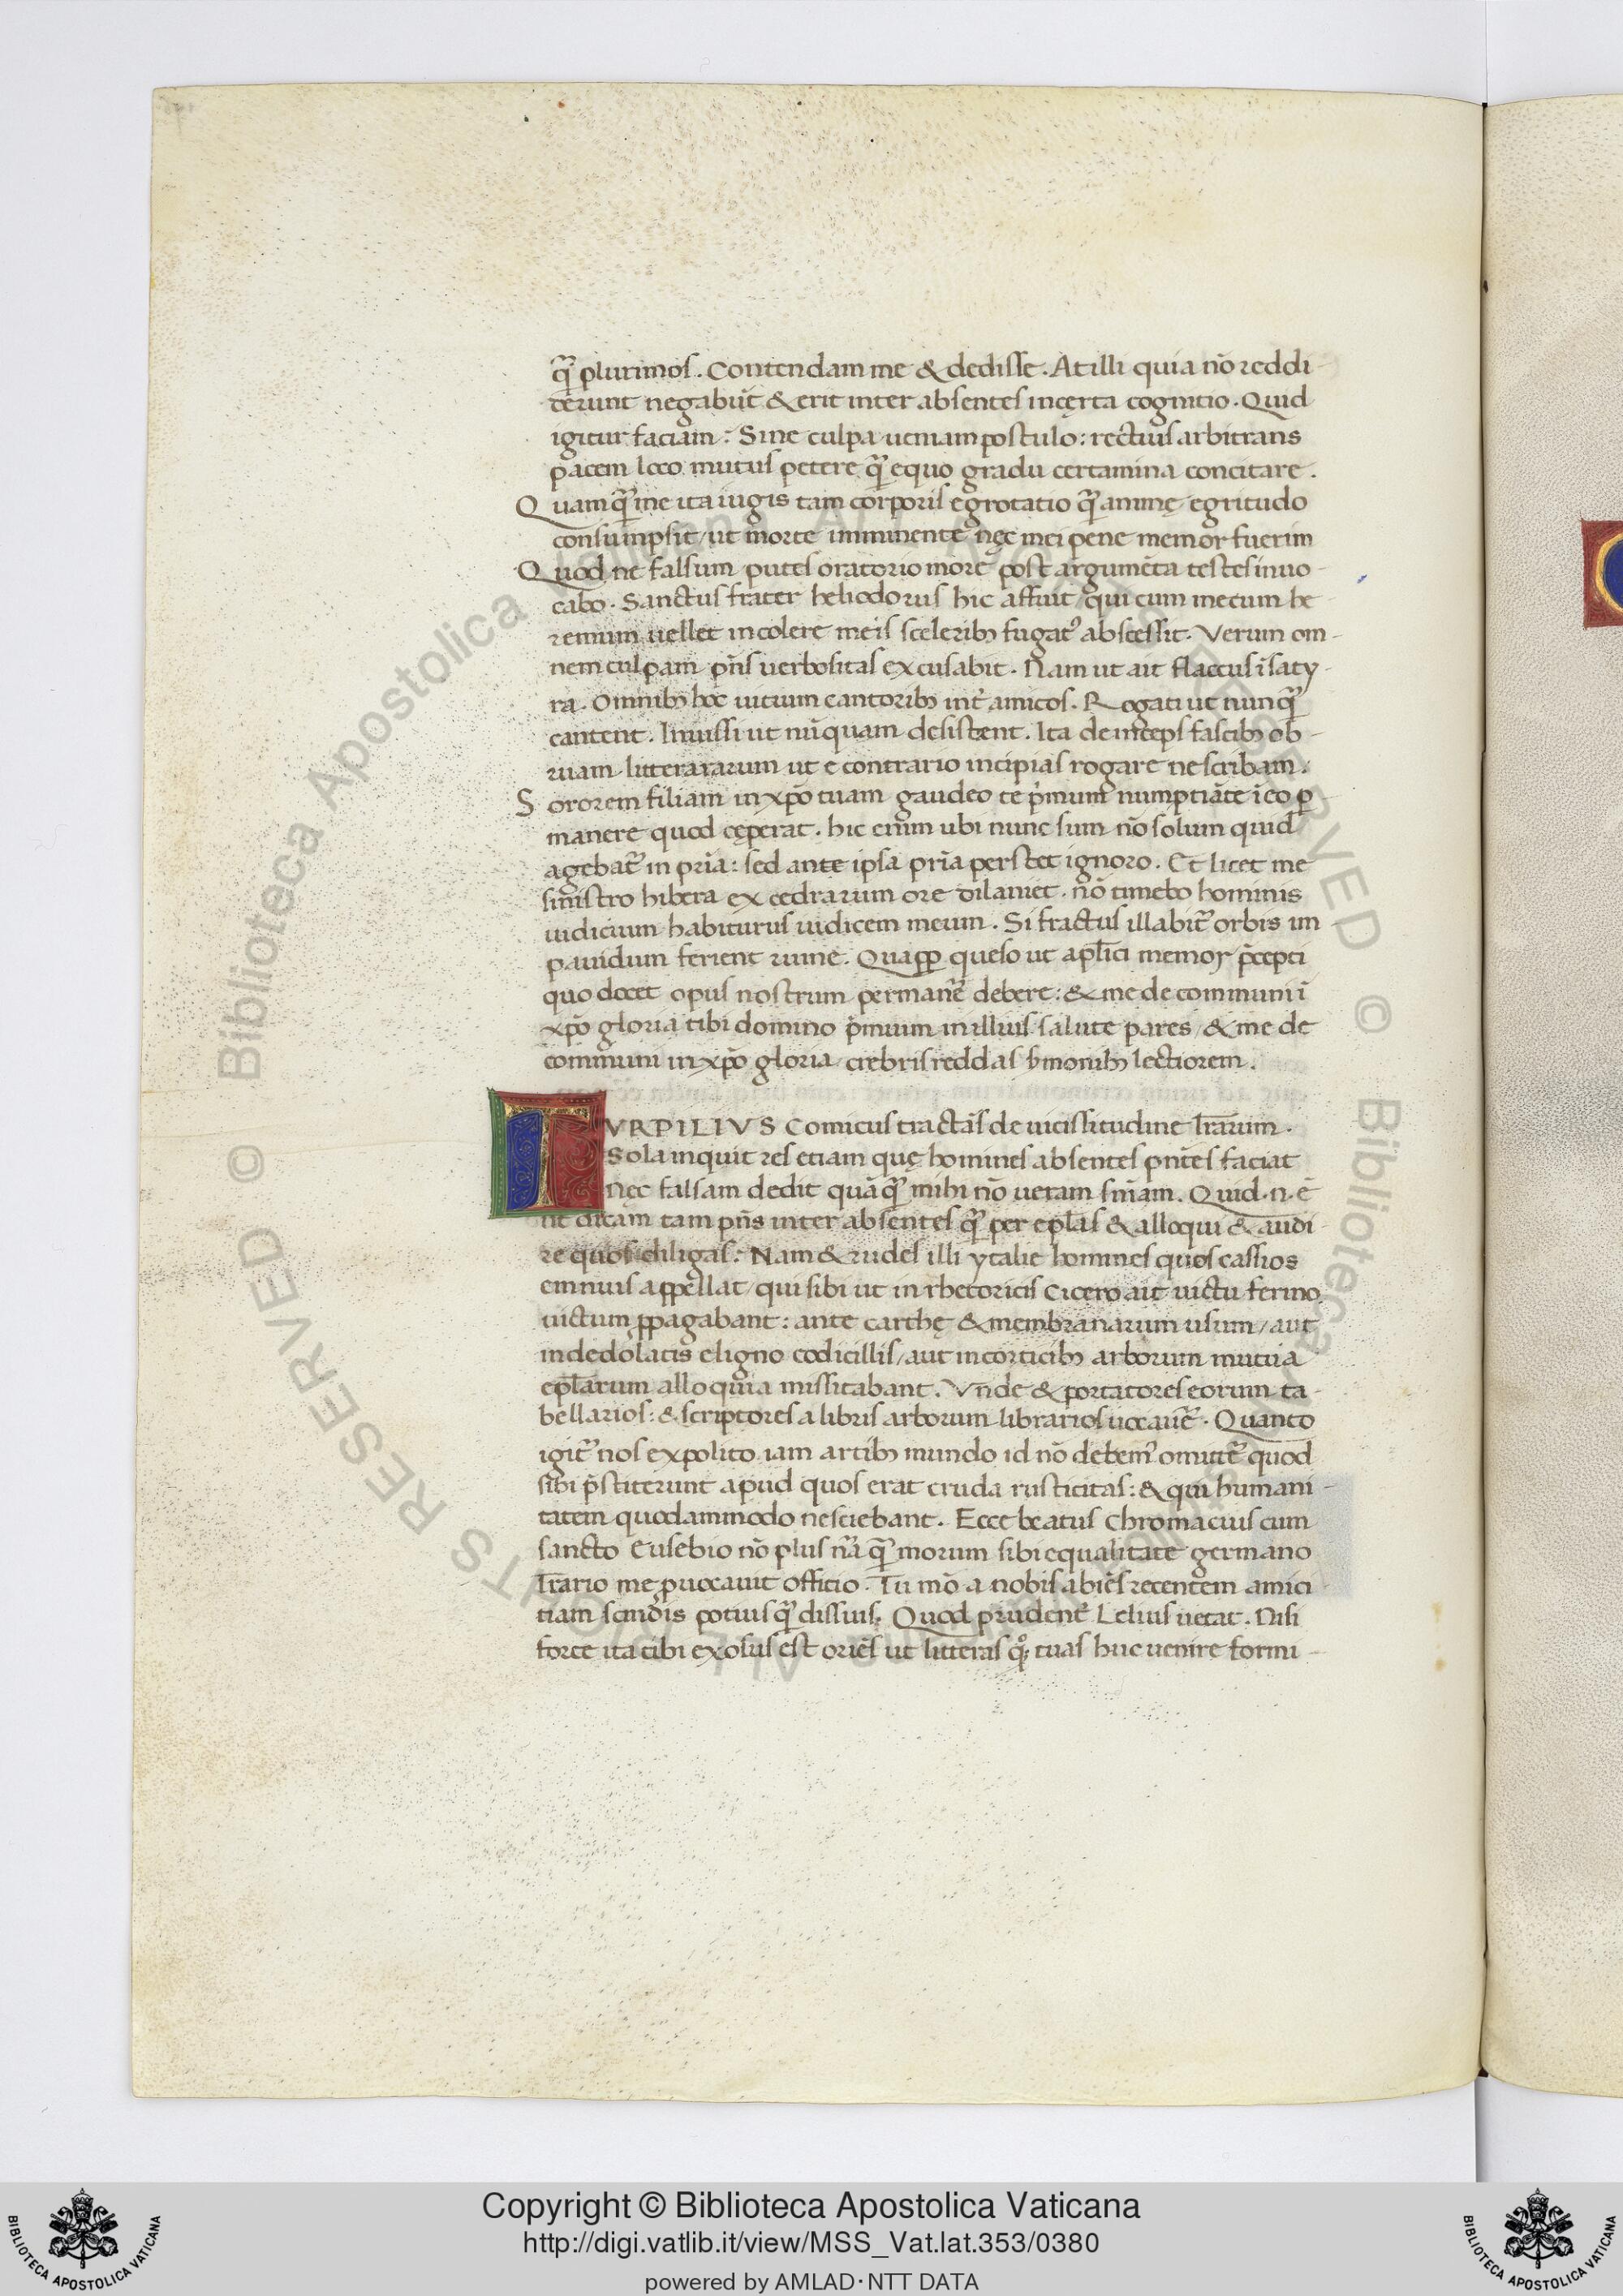 qᷓ plurimos. Contendam me & dedisse. At illi quia nō reddi-
derunt negabūt & erit inter absentes incęrta cognitio. Quid
igitur faciam: Sine culpa ueniam postulo: rectius arbitrans
pacem loco mutus petere qᷓ equo gradu certamina concitare.
Quamqᷓ me ita iugis tam corporis egrotatio qᷓ animę egritudo
consumpsit/ut morte imminente nęc mei pene memor fuerim
Quod ne falsum putes oratorio more post argumēta testes inuo-
cabo. Sanctus frater heliodorus hic affuit/qui cum mecum he
remum uellet incolere meis sceleribꝫ fugatꝰ abscessit. Verum om-
nem culpam pn̄s uerbositas excusabit. Nam ut ait flaccus ī saty-
ra. Omnibꝫ hoc uitium cantoribꝫ int̄ amicos. Rogati ut nunqᷓ
cantent. Iniussi ut nūquam desistent. Ita deinceps fascibꝫ ob-
ruam litterararum ut e contrario incipias rogare ne scribam.
Sororem filiam in xp̄o tuam gaudeo te p̄mum numptiāte ī eo ꝑ
manere quod cęperat. hic enim ubi nunc sum nō solum quid
agebat̄ in pr̄ia: sed ante ipsa pr̄ia perstet ignoro. Et licet me
sinistro hibera excedrarum ore dilaniet. nō timebo hominis
iudicium habiturus iudicem meum. Si fractus illabit̄ orbis im-
pauidum ferient ruine. Quaꝓp queso ut ap̄lici memor p̄cepti
quo docet opus nostrum permanēē debere: & me de communi ī
xp̄o gloria tibi domino p̄mium in illius salute pares/& me de
communi in xp̄o gloria crebris reddas s̄monibꝫ lectiorem.
TVRPILIVS Comicus tractās de uicissitudine lr̄arum.
Sola inquit res etiam quę homines absentes pn̄tes faciat
nęc falsam dedit quāqᷓ mihi nō ueram sn̄iam. Quid .n. ē
ut dicam tam pn̄s inter absentes qᷓ per epl̄as & alloqui & audi-
re quos diligas: Nam & rudes illi ytalie homines quos cassios
ennius appellat/qui sibi ut in rhetoricis Cicero ait uictu ferino
uictum ꝓpagabant: ante carthę & membranarum usum/aut
in dedolatis e ligno codicillis/aut in corticibꝫ arborum mutua
epl̄arum alloquia missitabant. Vnde & portatores eorum ta-
bellarios: & scriptores a libris arborum librarios uocauēr. Quanto
igit̄ nos expolito iam artibꝫ mundo id nō debemꝰ omittēr quod
sibi p̄stiterunt apud quos erat cruda rusticitas: & qui humani-
tatem quodammodo nesciebant. Ecce beatus Chromacius cum
sancto Eusebio nō plus nr̄a qᷓ morum sibi equalitate germano
lr̄ario me ꝓuocauit officio. Tu mō a nobis abiēs recentem amici-
tiam scindis potius qᷓ dissuis. Quod prudent̄ Lelius uetat. Nisi
forte ita tibi exosus est oriēs ut litteras qͦꝫ tuas huc uenire formi-
Copyright © Biblioteca Apostolica Vaticana
http://digi.vatlib.it/view/MSS_Vat.lat.353/0380
powered by AMLAD·NTT DATA
BIBLIOTECA APOSTOLICA VATICANA
BIBLIOTECA APOSTOLICA VATICANA